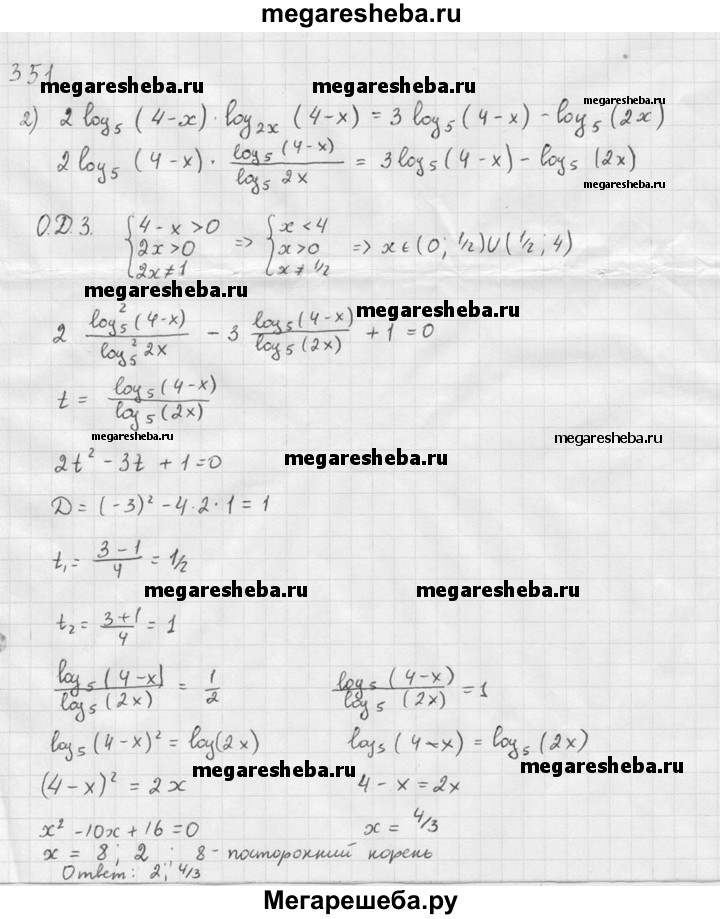 megaresheba.ru
351
megaresheba.ru megaresheba.ru megaresheba.ru
2) 2 log₅ (4-x) · log₂ₓ (4-x) = 3 log₅ (4-x) - log₅ (2x)
2 log₅ (4-x) · log₅ (4-x) / log₅ 2x = 3 log₅ (4-x) - log₅ (2x)
megaresheba.ru
О.Д.З. { 4-x>0 => { x<4
2x>0 x>0 => x ∈ (0; 1/2) ∪ (1/2; 4)
2x≠1 x≠1/2
megaresheba.ru
2 log₅² (4-x) / log₅² 2x - 3 log₅ (4-x) / log₅ (2x) + 1 = 0
megaresheba.ru
t = log₅ (4-x) / log₅ (2x)
megaresheba.ru megaresheba.ru
2t² - 3t + 1 = 0
megaresheba.ru
D = (-3)² - 4·2·1 = 1
t₁ = (3-1)/4 = 1/2
megaresheba.ru megaresheba.ru
t₂ = (3+1)/4 = 1
log₅ (4-x) / log₅ (2x) = 1/2 log₅ (4-x) / log₅ (2x) = 1
log₅ (4-x)² = log (2x) log₅ (4-x) = log₅ (2x)
megaresheba.ru megaresheba.ru
(4-x)² = 2x 4-x = 2x
x² - 10x + 16 = 0 x = 4/3
x = 8; 2 ; 8 - посторонний корень
Ответ: 2; 4/3
Мегарешеба.ру